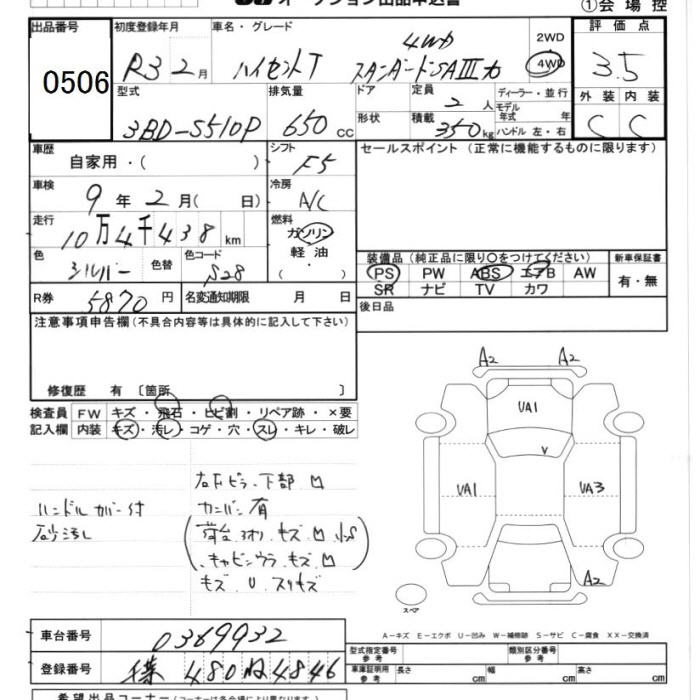 オークション出品申込書
①会場控
出品番号
0506
初度登録年月
R3 2月
車名・グレード
ハイゼットT
4WD
スタンダードSAⅢt
2WD
4WD
評価点
3.5
外装 内装
C C
型式
3BD-S510P
排気量
650cc
ドア
形状
定員
2人
積載
350kg
ディーラー・並行
モデル年式 年
ハンドル 左・右
車歴
自家用・( )
シフト
F5
セールスポイント (正常に機能するものに限ります)
車検
9年2月( 日)
冷房
A/C
走行
10万4千438km
燃料
ガソリン
軽油
( ・ )
色
シルバー
色替
色コード
S28
装備品 (純正品に限り○をつけてください)
PS PW ABS エアB AW
SR ナビ TV カワ
新車保証書
有・無
R券
5870円
名変通知期限 月 日
後日品
注意事項申告欄(不具合内容等は具体的に記入して下さい)
修復歴 有〔箇所 〕
検査員
記入欄
FW キズ・飛石・ヒビ割・リペア跡・×要
内装 キズ・汚レ・コゲ・穴・スレ・キレ・破レ
ハンドルカバー付
砂汚れ
右下ピラー下部凹
カンバン有
キズ 凹
キズ U スリキズ
A2 A2
UA1
V
UA1
UA3
A2
スペア
A-キズ E-エクボ U-凹み W-補修跡 S-サビ C-腐食 XX-交換済
車台番号
0369932
登録番号
480 4846
型式指定番号
参考
類別区分番号
参考
車庫証明用
参考
長さ cm
幅 cm
高さ cm
希望出品コーナー(コーナーは各会場により異なります)